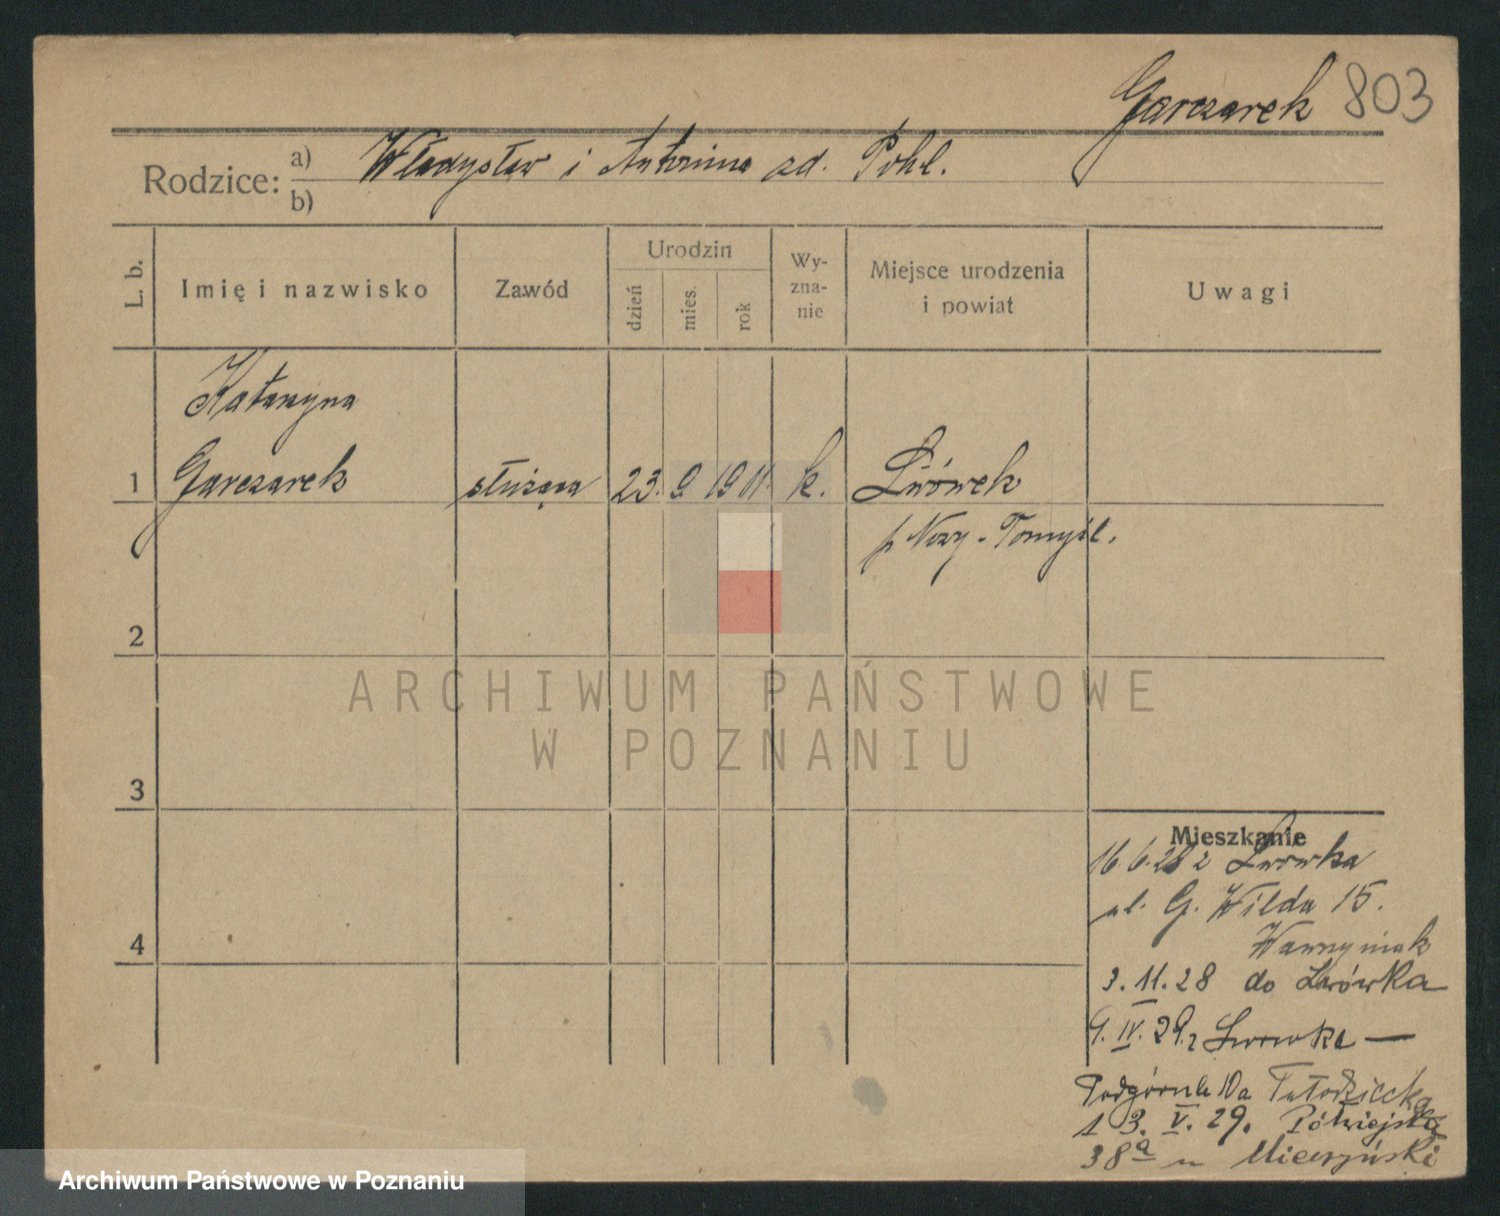 Garczarek 803
Rodzice: a) Władysław i Antonina zd. Pohl.
b)
L. b. Imię i nazwisko Zawód Urodzin dzień mies. rok Wy-zna-nie Miejsce urodzenia i powiat Uwagi
Katarzyna
1 Garczarek służąca 23. 9. 1901. k. Lwówek
p Nowy-Tomyśl.
2
ARCHIWUM PAŃSTWOWE
W POZNANIU
3
Mieszkanie
16 6.28 z Lwówka
ul. G. Wilda 15.
4
Wawrzyniak
3.11.28 do Lwówka
9. IV. 29. z Lwówka —
Podgórna 10a
13. V. 29. Półwiejska
38a u Mieczyński
Archiwum Państwowe w Poznaniu